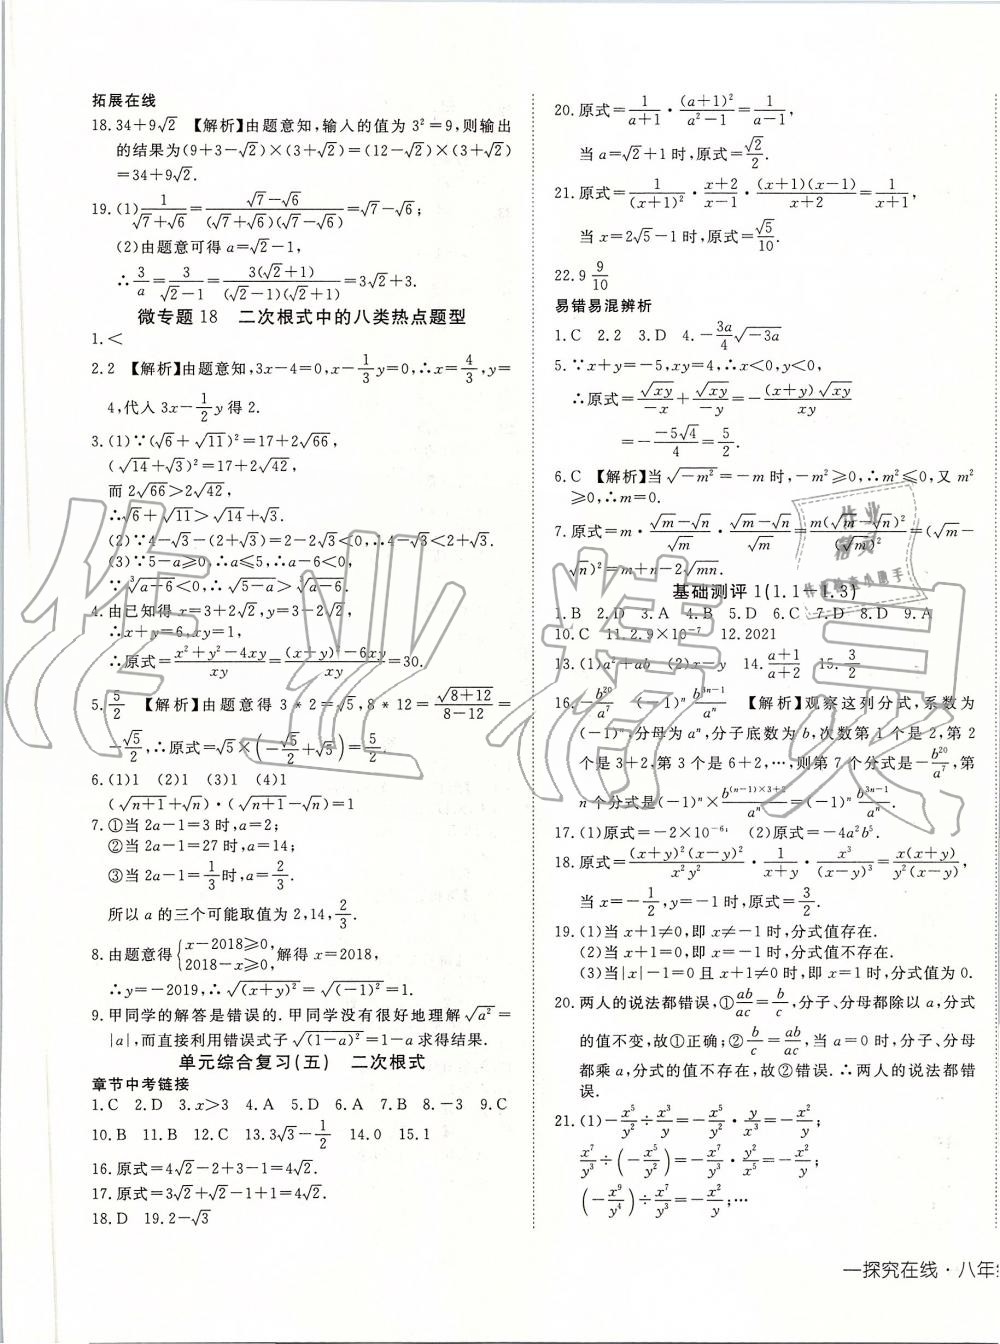 拓展在线
18. 34+9√2 【解析】由题意知,输入的值为 3²=9,则输出
的结果为(9+3-√2)×(3+√2)=(12-√2)×(3+√2)
=34+9√2.
19. (1) 1/(√7+√6)=(√7-√6)/((√7+√6)(√7-√6))=√7-√6;
(2)由题意可得 a=√2-1,
∴3/a=3/(√2-1)=3(√2+1)/((√2-1)(√2+1))=3√2+3.
微专题 18 二次根式中的八类热点题型
1. <
2. 2 【解析】由题意知,3x-4=0,x-1/3y=0,∴x=4/3,y=
4,代入 3x-1/2y 得 2.
3. (1)∵(√6+√11)²=17+2√66,
(√14+√3)²=17+2√42,
而 2√66>2√42,
∴√6+√11>√14+√3.
(2)∵4-√3-(2+√3)=2-2√3<0,∴4-√3<2+√3.
(3)∵5-a≥0,∴a≤5,∴a-6<0,
∴³√(a-6)<0,∴√(5-a)>³√(a-6).
4. 由已知得 x=3+2√2,y=3-2√2,
∴x+y=6,xy=1,
∴原式=(x²+y²-4xy)/xy=((x+y)²-6xy)/xy=30.
5. 5/2 【解析】由题意得 3*2=√5,8*12=√(8+12)/(8-12)=
-√5/2,∴原式=√5×(-√5/2+√5)=5/2.
6. (1)1 (2)1 (3)1 (4)1
(√(n+1)+√n)·(√(n+1)-√n)=1
7. ①当 2a-1=3 时,a=2;
②当 2a-1=√(3³) 时,a=14;
③当 2a-1=1/3 时,a=2/3.
所以 a 的三个可能取值为 2,14,2/3.
8. 由题意得{x-2018≥0,2018-x≥0,解得 x=2018,
∴y=-2019,∴√((x+y)²)=√((-1)²)=1.
9. 甲同学的解答是错误的. 甲同学没有很好地理解√(a²)=
|a|,而直接利用错误式子√((1-a)²)=1-a 求得结果.
单元综合复习(五) 二次根式
章节中考链接
1. C 2. D 3. x>3 4. A 5. D 6. A 7. B 8. -3 9. C
10. B 11. B 12. C 13. 3√3-1/2 14. 0 15. 1
16. 原式=4√2-2+3-1=4√2.
17. 原式=3√2+√2-1=4√2-1.
18. D 19. 2-√3
20. 原式=1/(a+1)·(a+1)²/(a²-1)=1/(a-1),
当 a=√2+1 时,原式=√2/2.
21. 原式=1/(x+1)²·(x+2)/(x-1)·(x+1)(x-1)/(x+2)=1/(x+1),
当 x=2√5-1 时,原式=√5/10.
22. 9 9/10
易错易混辨析
1. C 2. 2 3. D 4. -3a/4√(-3a)
5. ∵x+y=-5,xy=4,∴x<0,y<0,
∴原式=√(xy)/(-x)+√(xy)/(-y)=-(x+y)√(xy)/xy
=-(-5√4)/4=5/2.
6. C 【解析】当√(-m²)=-m 时,-m²≥0,∴m²≤0,又 m²
≥0,∴m=0.
7. 原式=m·(√m-√n)/√m·(√m-√n)/√m=m(√m-√n)²/(√m)²=(√m-
√n)²=m+n-2√(mn).
基础测评 1(1.1~1.3)
1. B 2. D 3. A 4. B 5. D 6. C 7. D 8. D 9. A
10. C 11. 2.9×10⁻⁷ 12. 2021
13. (1)a²+ab (2)x-y 14. (a+1)/(a+2) 15. 3/2
16. -b²⁰/a⁷ (-1)ⁿb³ⁿ⁻¹/aⁿ 【解析】观察这列分式,系数为
(-1)ⁿ,分母为 aⁿ,分子底数为 b,次数第 1 个是 2,第 2
个是 3+2,第 3 个是 6+2,…,则第 7 个分式是-b²⁰/a⁷,第
n 个分式是(-1)ⁿ×b⁽ⁿ⁻¹⁾ˣ³⁺²/aⁿ=(-1)ⁿb³ⁿ⁻¹/aⁿ.
17. (1)原式=-2×10⁻⁶; (2)原式=-4a²b⁵.
18. 原式=(x+y)²(x-y)²/x²y²·1/(x+y)·x³/(x-y)³=x(x+y)/y²(x-y),
当 x=-1/2,y=-1 时,原式=3/2.
19. (1)当 x+1≠0,即 x≠-1 时,分式值存在.
(2)当 x+1=0,即 x=-1 时,分式值不存在.
(3)当|x|-1=0 且 x+1≠0 时,即 x=1 时,分式值为 0.
20. 两人的说法都错误,①ab/ac=b/c,分子、分母都除以 a,分式
的值不变,故①错误,正确;②b/c=ab/ac,当 a=0 时,分子、分母
都乘 a,分式无意义,故②错误. ∴两人的说法都错
误.
21. (1)-x⁵/y²÷x³/y=-x⁵/y²·y/x³=-x²/y;
x⁷/y³÷(-x⁵/y²)=x⁷/y³·y²/x⁵=-x²/y;
(-x⁹/y⁴)÷x⁷/y³=-x²/y;…
一探究在线·八年
作业精灵
作业
精灵
作业检查小助手